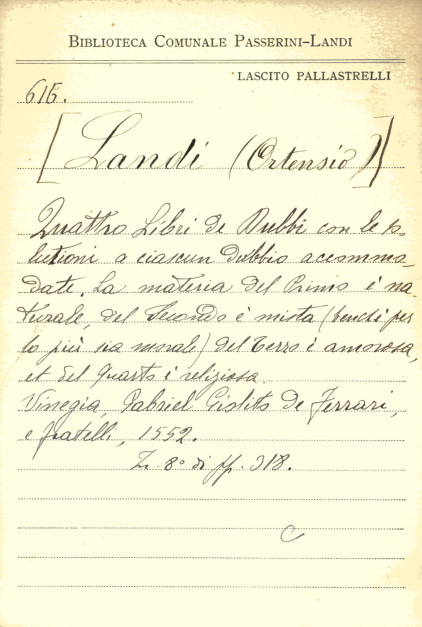 BIBLIOTECA COMUNALE PASSERINI-LANDI
LASCITO PALLASTRELLI
616.
[Landi (Ortensio)]
Quattro Libri de Dubbi con le so-
lutioni a ciascun dubbio accommo-
date. La materia del Primo è na-
turale, del Secondo è mista (benchi per
lo più sia morale) del Terzo è amorosa,
et del Quarto è religiosa.
Vinegia, Gabriel Giolito De Ferrari,
e fratelli, 1552.
8° di pp. 318.
C